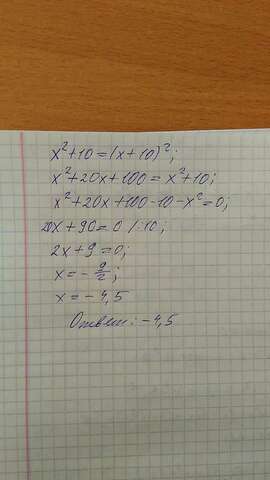 x²+10=(x+10)²;
x²+20x+100=x²+10;
x²+20x+100-10-x²=0;
20x+90=0 /:10;
2x+9=0;
x=-9/2;
x=-4,5
Ответ: -4,5